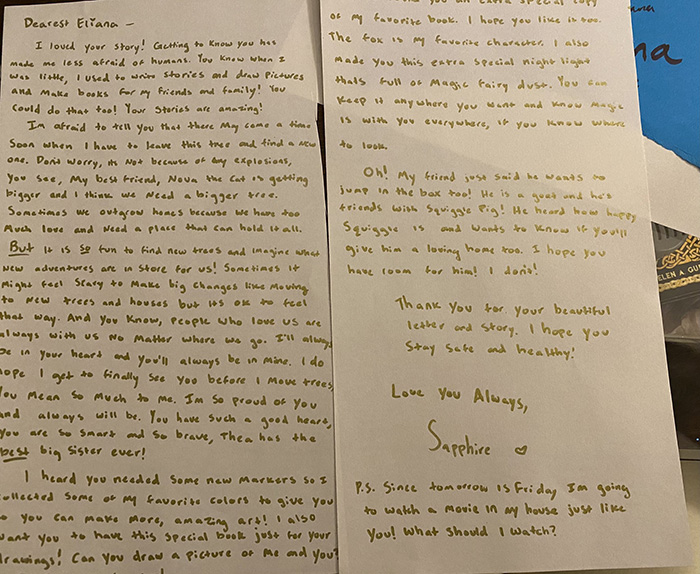 Dearest Eliana –
I loved your story! Getting to Know you has
made me less afraid of humans. You Know when I
was little, I used to write stories and draw pictures
and Make books for my friends and family! You
could do that too! Your Stories are amazing!
I'm afraid to tell you that there May come a time
Soon when I have to leave this tree and find a new
one. Don't worry, its Not because of any explosions,
You see, My best friend, Nova the Cat is getting
bigger and I think we Need a bigger tree.
Sometimes we outgrow homes because we have too
Much love and Need a place that can hold it all.
But it is so fun to find new trees and imagine what
New adventures are in store for us! Sometimes it
Might feel Scary to Make big changes like Moving
to New trees and houses but its ok to feel
that way. And you Know, people who love us are
always with us No Matter where we go. I'll always
be in your heart and you'll always be in Mine. I do
hope I get to finally see you before I Move trees,
You Mean So Much to me. Im So proud of you
and always will be. You have such a good heart,
You are So Smart and So brave, Thea has the
best big Sister ever!
I heard you needed Some new Markers so I
collected Some of My favorite colors to give you
So you Can make More, amazing art! I also
want you to have this Special book just for your
drawings! Can you draw a picture of Me and You?
you an extra special copy
of my favorite book. I hope you like is too.
The fox is My favorite character. I also
Made you this extra special night light
thats full of Magic fairy dust. You can
Keep it anywhere you want and Know Magic
is with you everywhere, if you Know where
to look.
Oh! My friend just said he wants to
jump in the box too! He is a goat and he's
friends with Squiggle Pig! He heard how happy
Squiggle is and wants to Know if you'll
give him a loving home too. I hope you
have room for him! I don't!
Thank you for your beautiful
letter and story. I hope you
Stay Safe and healthy!
Love you Always,
Sapphire
P.S. Since tomorrow is Friday Im going
to watch a movie in my house just like
You! What Should I watch?
ELEN A. GU